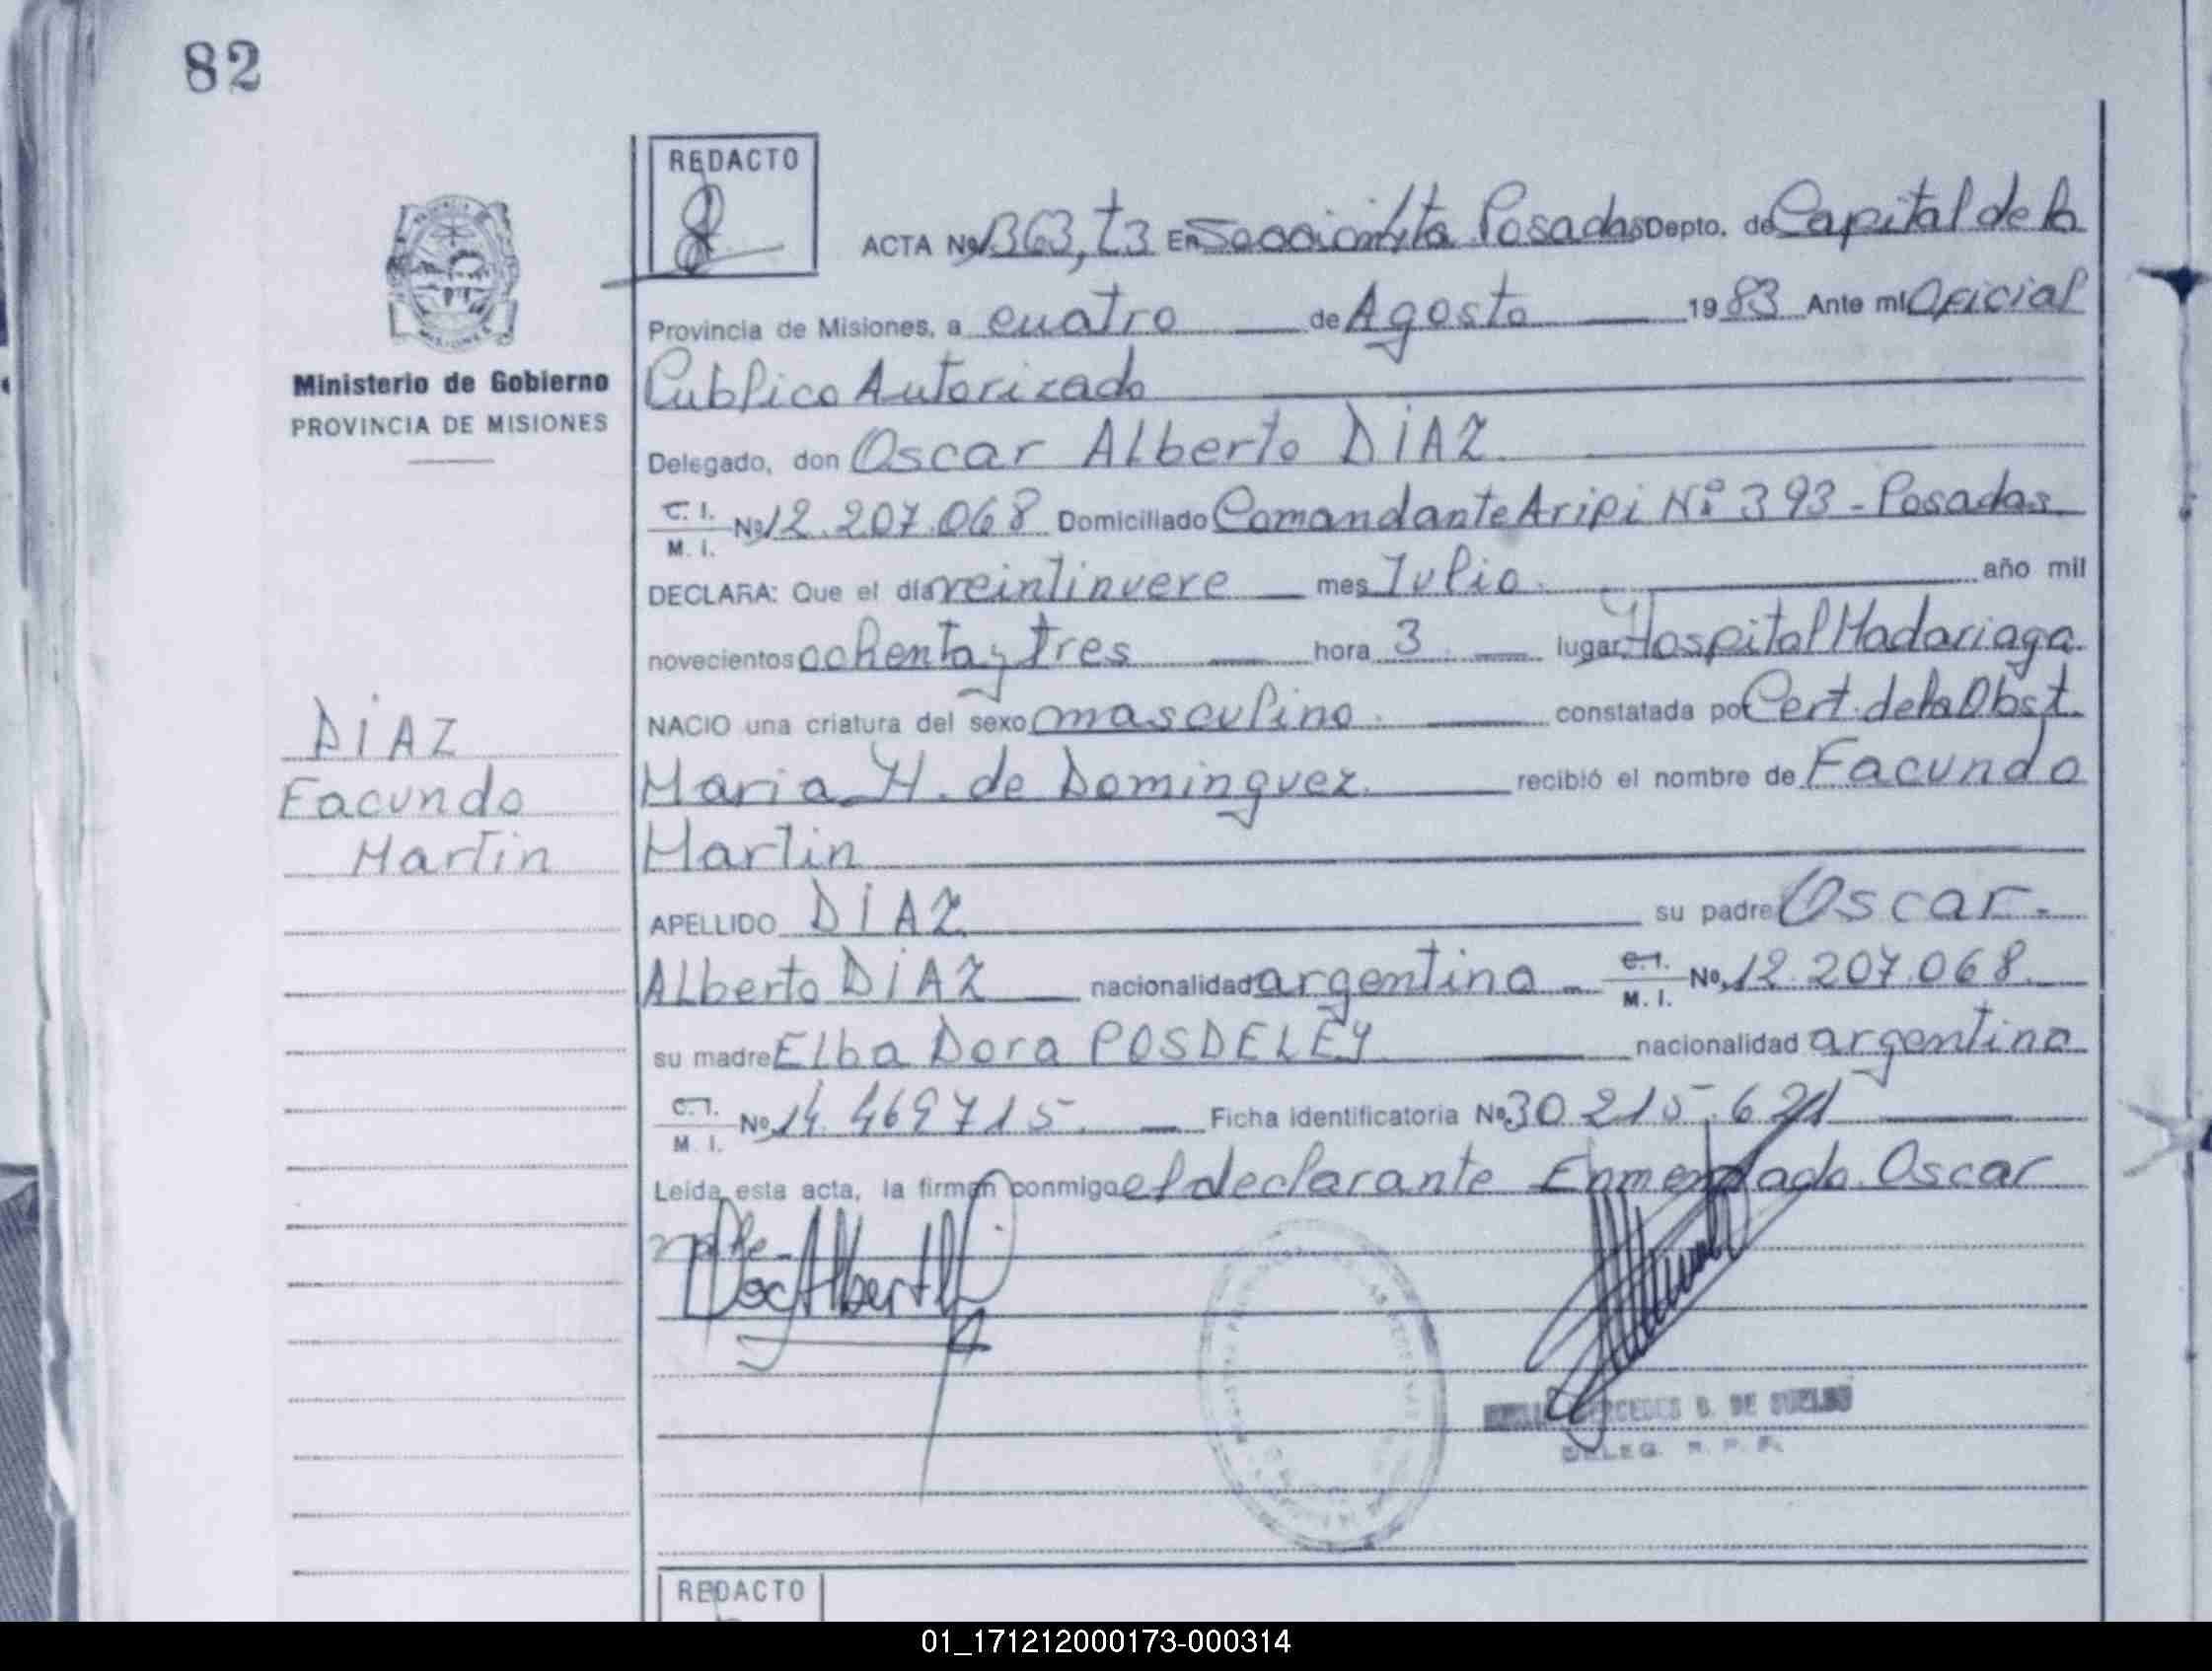 82
REDACTO
ACTA Nº 1363, t3 En Sección 4ta Posadas Depto. de Capital de la
Provincia de Misiones, a cuatro de Agosto 1983 Ante mi Oficial
Ministerio de Gobierno
PROVINCIA DE MISIONES
Publico Autorizado
Delegado, don Oscar Alberto DiAZ
C. I. M. I. Nº 12.207.068 Domiciliado Comandante Aripi Nº 393 - Posadas
DECLARA: Que el día veintinueve mes Julio año mil
novecientos ochenta y tres hora 3 lugar Hospital Madariaga
NACIO una criatura del sexo masculino constatada por Cert. de la Obst.
Maria H. de Dominguez recibió el nombre de Facundo
Martin
DiAZ
Facundo
Martin
APELLIDO DiAZ su padre Oscar
Alberto DiAZ nacionalidad argentina C. I. M. I. Nº 12.207.068
su madre Elba Dora POSDELEY nacionalidad argentina
C. I. M. I. Nº 14.469715 Ficha identificatoria Nº 30.215.621
Leída esta acta, la firman conmigo el declarante Enmendado Oscar
vale-
DE SUELDO
DELEG. R. P. P.
REDACTO
01_171212000173-000314